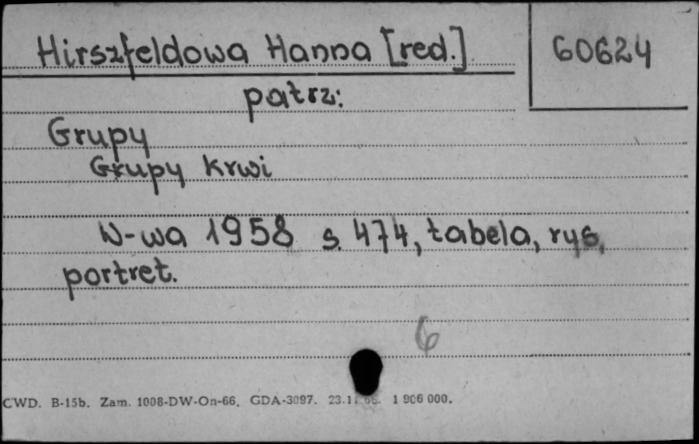 Hirszfeldowa Hanna [red.] 60624
patrz:
Grupy
Grupy krwi
W-wa 1958 s. 474, tabela, rys,
portret.
6
CWD. B-15b. Zam. 1008-DW-On-66. GDA-3097. 1 906 000.